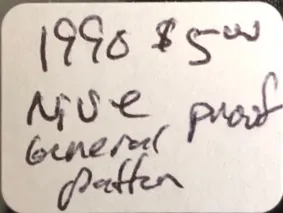 1990 $5.00
Niue proof
General
Patten